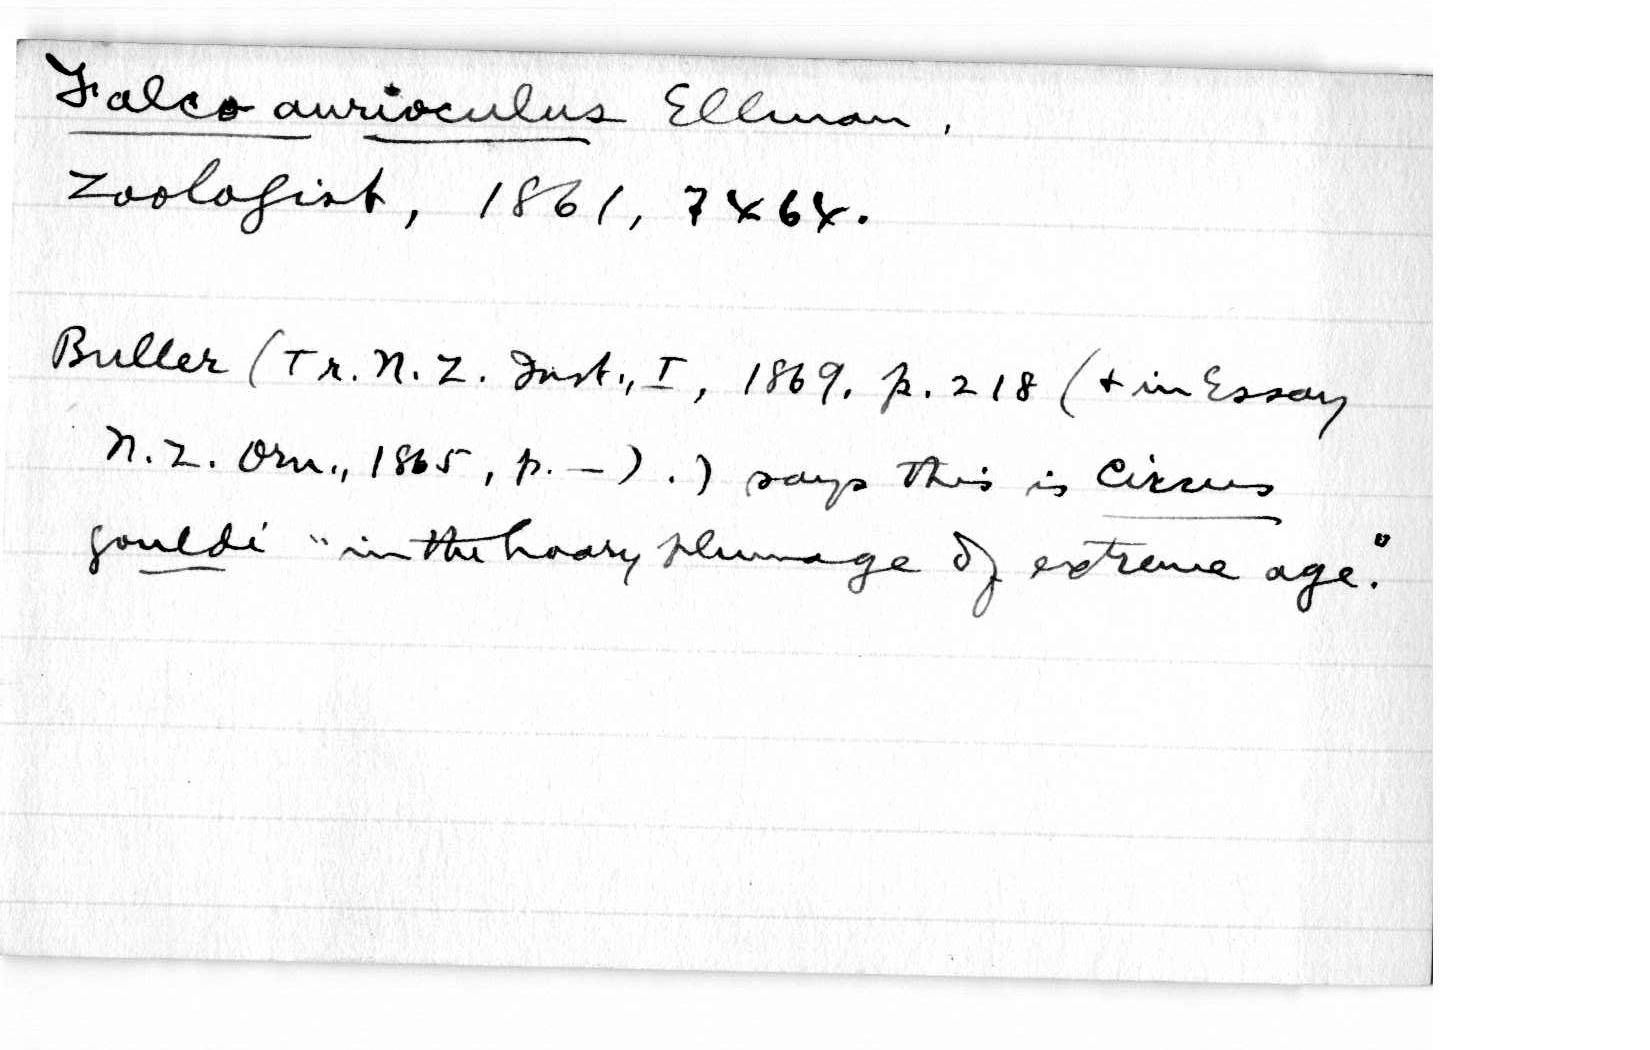 Falco aurioculus Ellman,
Zoologist, 1861, 7464.
Buller (Tr. N. Z. Inst., I, 1869, p. 218 (+ in Essay
N. Z. Orn., 1865, p. –).) says this is Circus
gouldi "in the hoary plumage of extreme age."